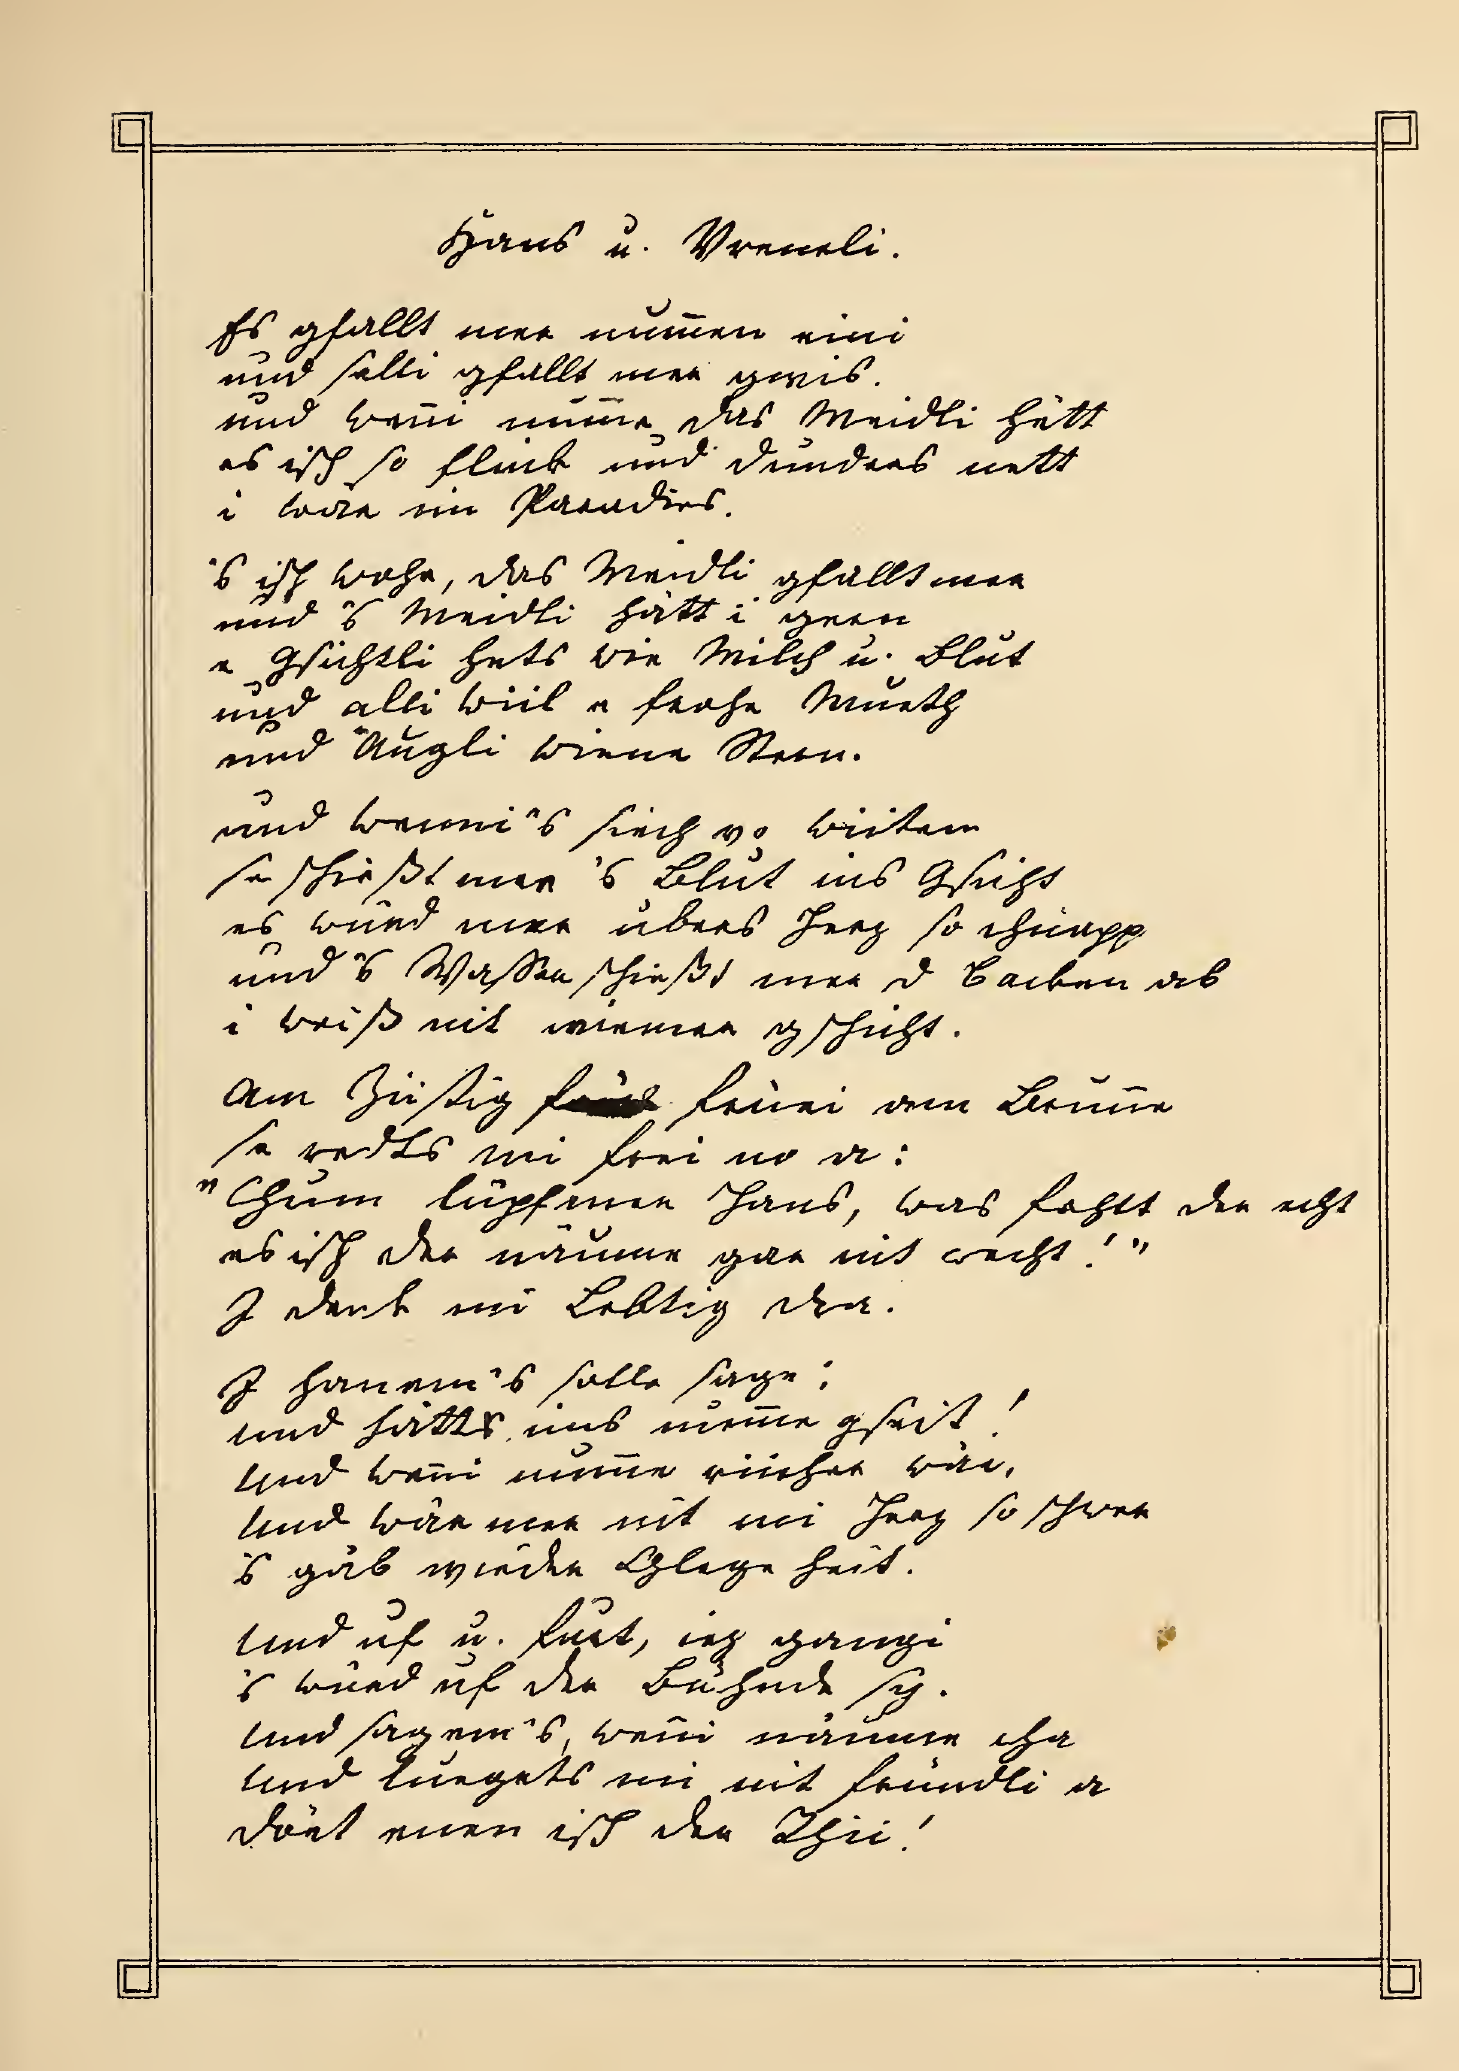 Hans u. Vreneli.
Es gfallt mer num̅en eini
und selli gfallt mer gwis.
und wen̅i num̅e das Meidli hätt
es isch so flink und dunders nett
i wär im Paradies.
's isch wohr, das Meidli gfallt mer
und 's Meidli hätt i gern
e Gsichtli hets wie Milch u. Blut
und alli wiil e frohe Mueth
und Äugli wiene Stern.
und wenni's siech vo wiitem
se schießt mer 's Blut ins Gsicht
es würd mer übers Herz so chnapp
und 's Wasser schießt mer d Backen ab
i weiß nit wiemer gschicht.
Am Ziistig früei am Brun̅e
se redts mi frei no a:
"Chum lüpfmer Hans, was fehlt der echt
es isch der näume gar nit recht!"
I denk mi Lebtig dra.
I hanem's solle sage:
und hätts ims num̅e gseit!
Und wen̅i num̅e riicher wär,
Und wär mer nit mi Herz so schwer
's gäb wieder Glege heit.
Und uf u. furt, iez gangi
's würd uf der Bühnde sy.
Und sagem's, wen̅i näume cha
Und luegets mi nit fründli a
dört enen isch der Rhii!